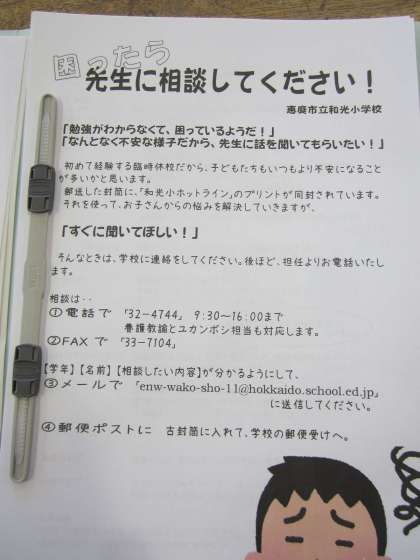 困ったら
先生に相談してください！
恵庭市立和光小学校
「勉強がわからなくて、困っているようだ！」
「なんとなく不安な様子だから、先生に話を聞いてもらいたい！」
初めて経験する臨時休校だから、子どもたちもいつもより不安になること
が多いかと思います。
郵送した封筒に、「和光小ホットライン」のプリントが同封されています。
それを使って、お子さんからの悩みを解決していきますが、
「すぐに聞いてほしい！」
そんなときは、学校に連絡をしてください。後ほど、担任よりお電話いたし
ます。
相談は‥
①電話で 「32-4744」 9:30～16:00まで
養護教諭とユカンボシ担当も対応します。
②FAXで 「33-7104」
【学年】【名前】【相談したい内容】が分かるようにして、
③メールで 「enw-wako-sho-11@hokkaido.school.ed.jp」
に送信してください。
④郵便ポストに 古封筒に入れて、学校の郵便受けへ。